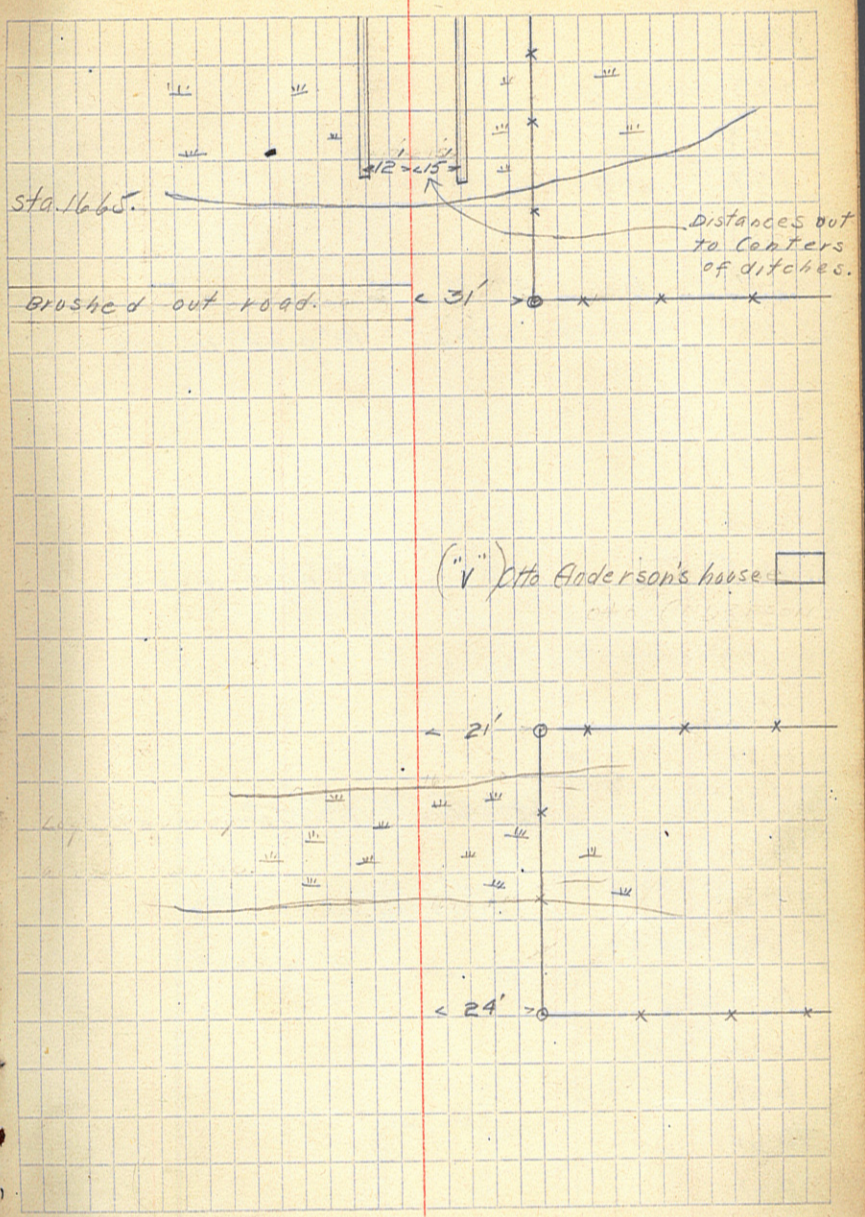 12' 15'
sta. 1665.
Distances out
to Centers
of ditches.
Brushed out road.
31'
("V") Otto Anderson's house
21'
24'